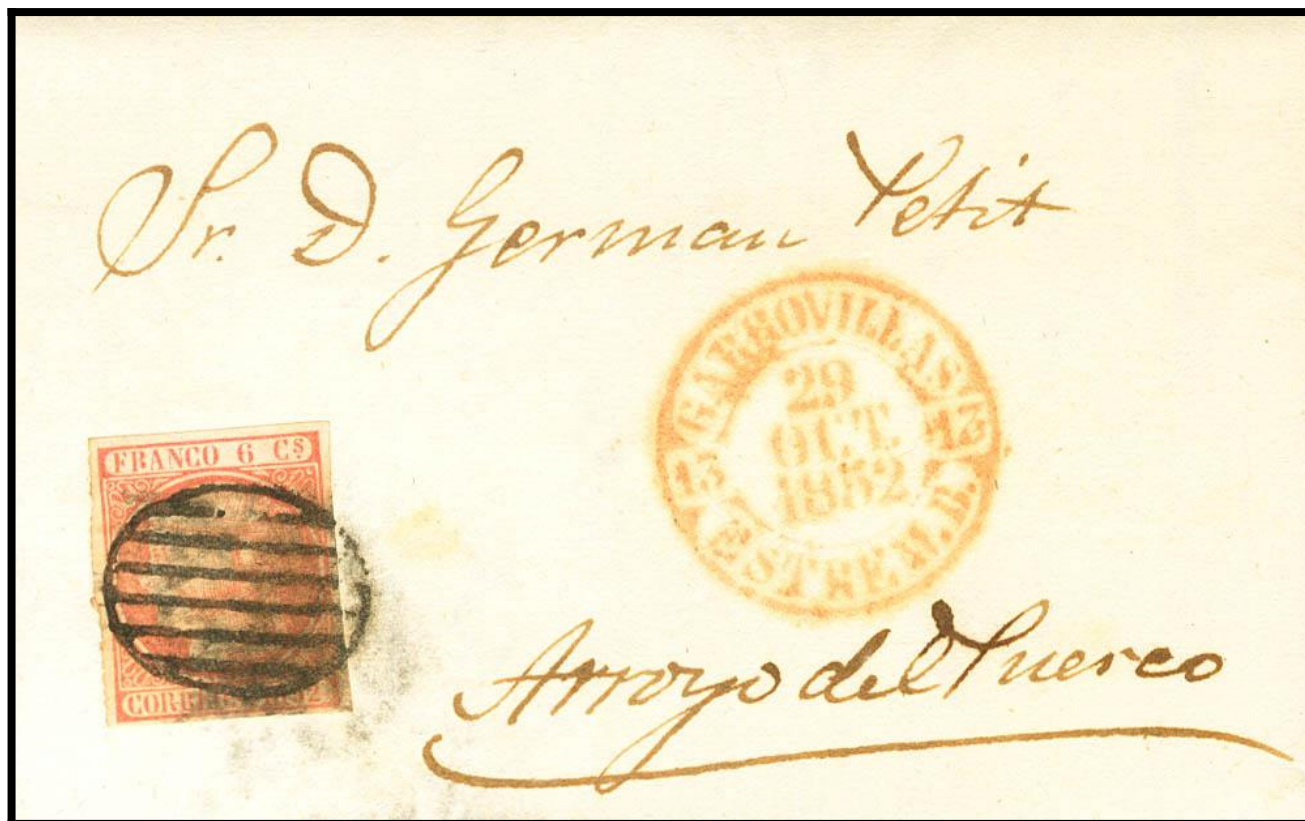 Sr. D. German Petit
GARROVILLAS
13 13
29
OCT.
1852
ESTREM. B.
FRANCO 6 Cs
Arroyo del Puerco